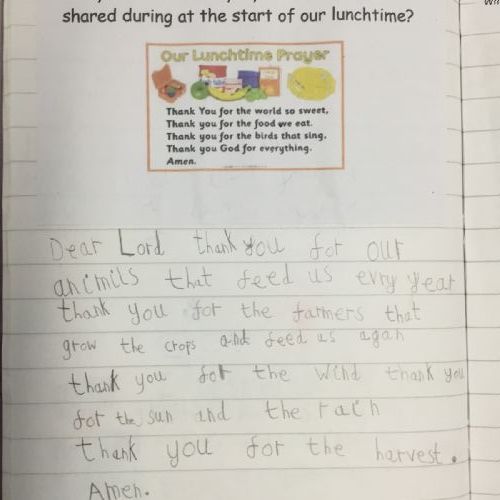 shared during at the start of our lunchtime?
Our Lunchtime Prayer
Thank You for the world so sweet,
Thank you for the food we eat.
Thank you for the birds that sing,
Thank you God for everything.
Amen.
Dear Lord thank you for our
animils that feed us evry year
thank you for the farmers that
grow the crops and feed us agah
thank you for the wind thank you
for the sun and the rach
thank you for the harvest.
Amen.